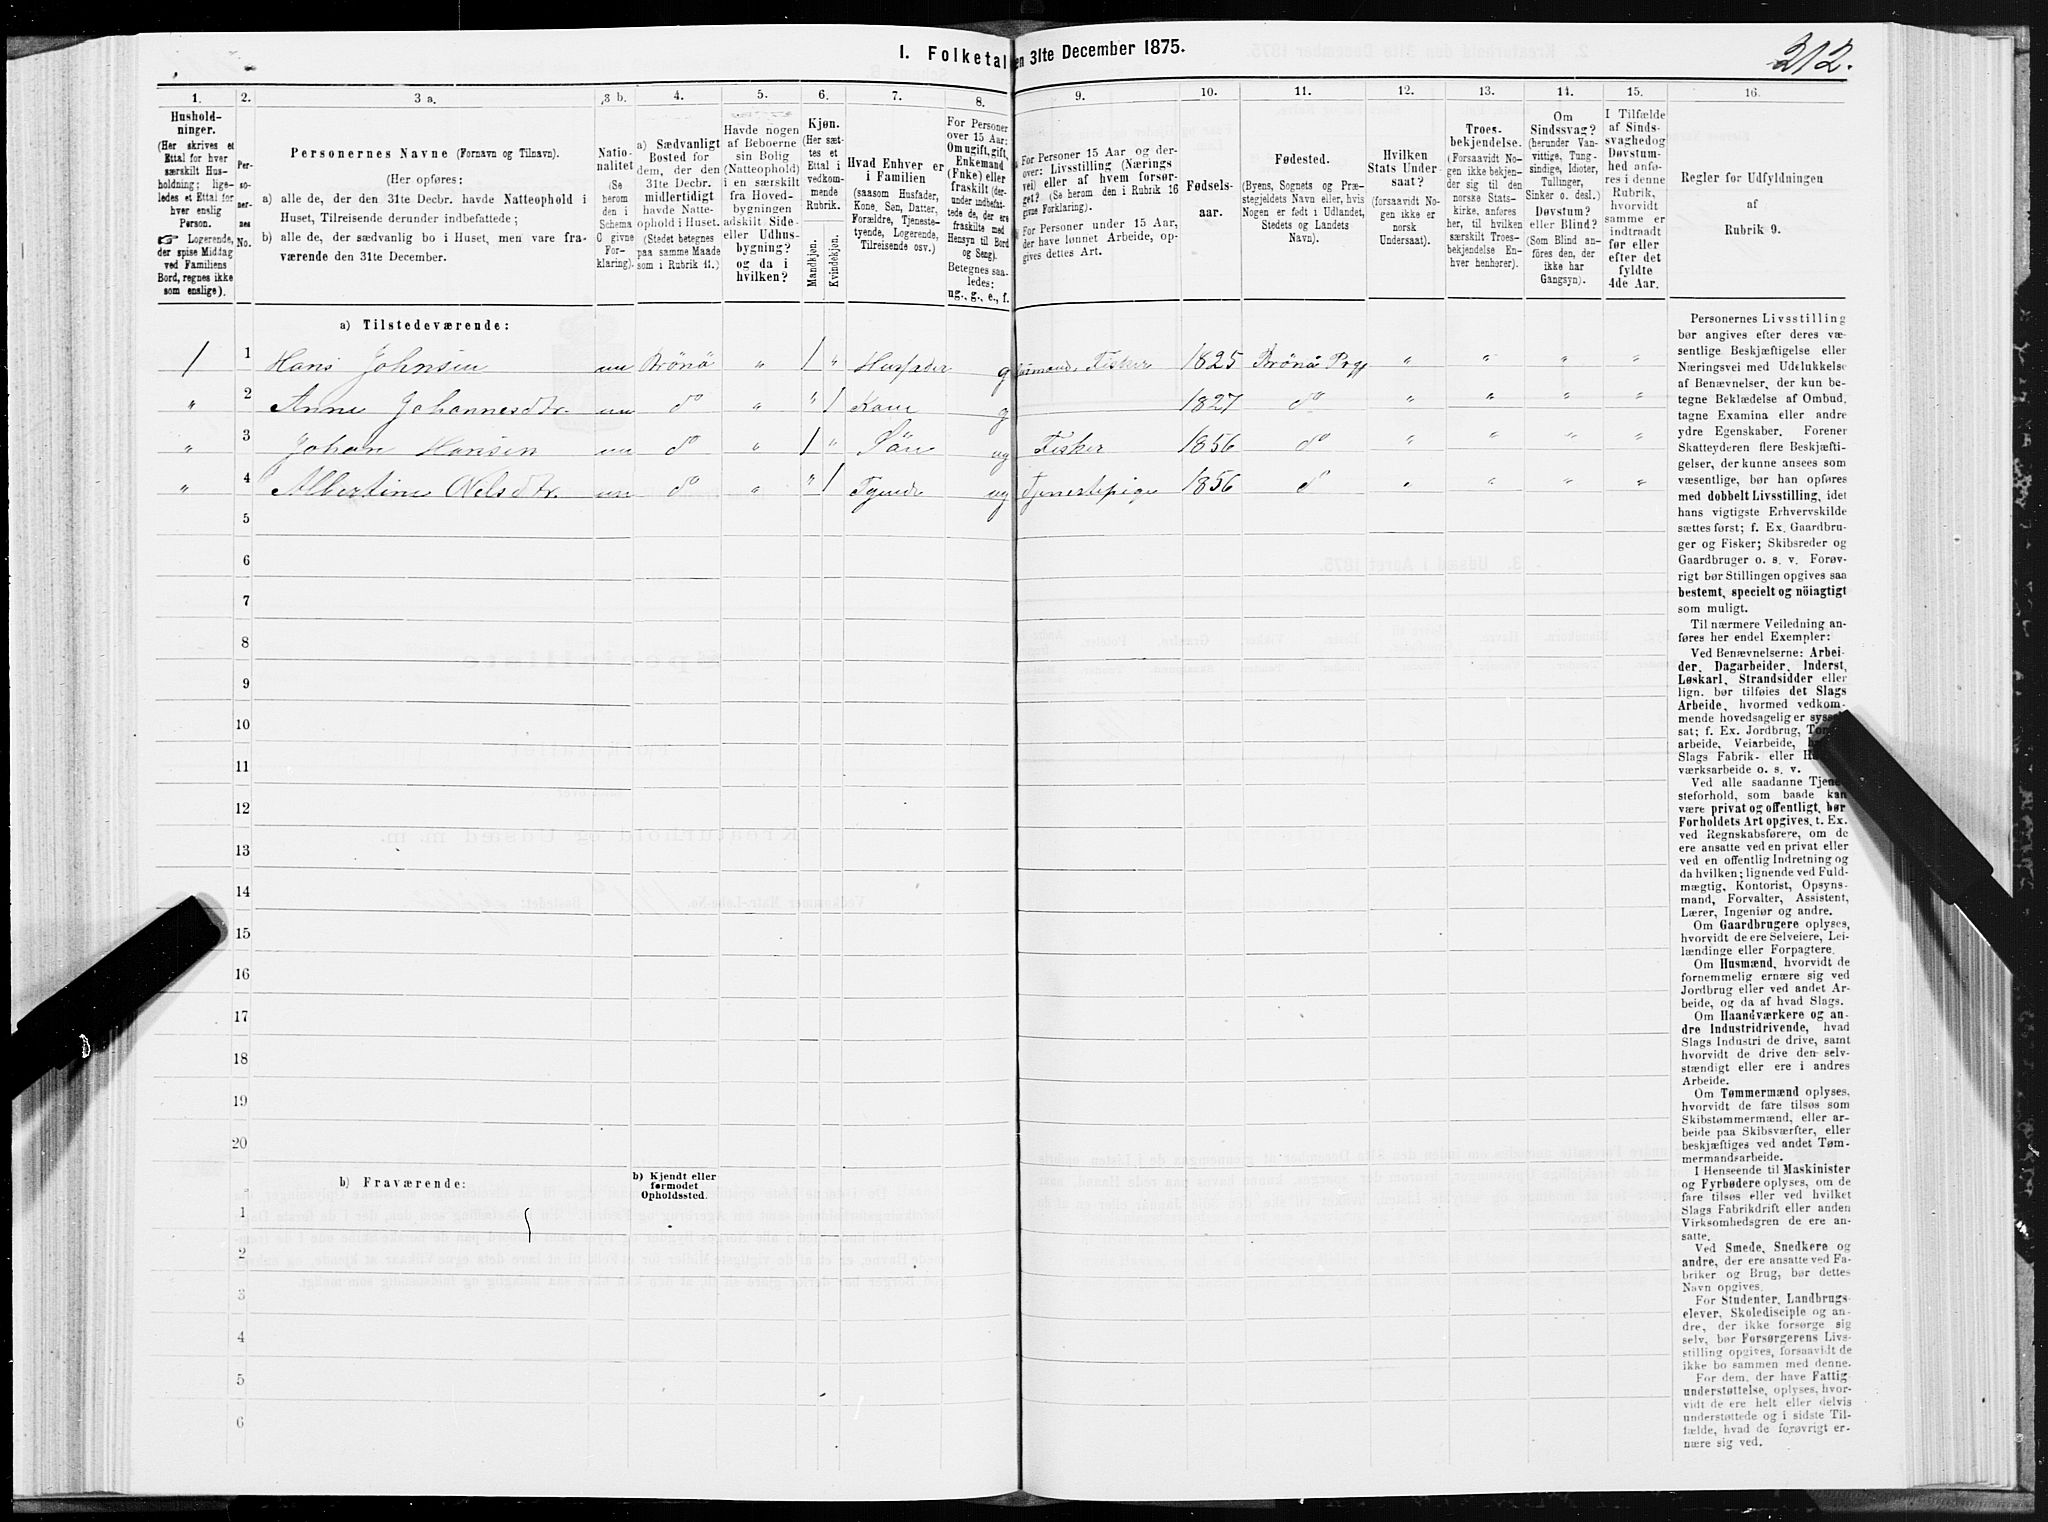 I. Folketal
en 31te December 1875.
212.
1.
2.
3 a.
3 b.
4.
5.
6.
7.
8.
9.
10.
11.
12.
13.
14.
15.
16.
Hushold-
ninger.
(Her skrives et
Ettal for hver
særskilt Hus-
holdning; lige-
ledes et Ettal for
hver enslig
Person.
☞ Logerende,
der spise Middag
ved Familiens
Bord, regnes ikke
som enslige).
Per-
so-
ner-
nes
No.
Personernes Navne (Fornavn og Tilnavn).
(Her opføres:
a) alle de, der den 31te Decbr. havde Natteophold i
Huset, Tilreisende derunder indbefattede;
b) alle de, der sædvanlig bo i Huset, men vare fra-
værende den 31te December.
Natio-
nalitet
(Se
herom
den i
Schema
C givne
For-
klaring).
a) Sædvanligt
Bosted for
dem, der den
31te Decbr.
midlertidigt
havde Natte-
ophold i Huset.
(Stedet betegnes
paa samme Maade
som i Rubrik 11.)
Havde nogen
af Beboerne
sin Bolig
(Natteophold)
i en særskilt
fra Hoved-
bygningen
adskilt Side-
eller Udhus-
bygning?
og da i
hvilken?
Kjøn.
(Her sæt-
tes et
Ettal i
vedkom-
mende
Rubrik.
Mandkjøn.
Kvindekjøn.
Hvad Enhver er
i Familien
(saasom Husfader,
Kone, Søn, Datter,
Forældre, Tjeneste-
tyende, Logerende,
Tilreisende osv.)
For Personer
over 15 Aar;
Om ugift, gift,
Enkemand
(Enke) eller
fraskilt (der-
under indbefat-
tede de, der ere
fraskilte med
Hensyn til Bord
og Seng).
Betegnes saa-
ledes:
ug., g., e., f.
For Personer 15 Aar og der-
over: Livsstilling (Nærings
vei) eller af hvem forsør-
get? (Se herom den i Rubrik 16
givne Forklaring).
For Personer under 15 Aar,
der have lønnet Arbeide, op-
gives dettes Art.
Fødsels-
aar.
Fødested.
(Byens, Sognets og Præ-
stegjeldets Navn eller, hvis
Nogen er født i Udlandet,
Stedets og Landets
Navn).
Hvilken
Stats Under-
saat?
(forsaavidt No-
gen ikke er
norsk
Undersaat).
Troes-
bekjendelse.
(Forsaavidt No-
gen ikke bekjen-
der sig til den
norske Stats-
kirke, anføres
her, til hvilken
særskilt Troes-
bekjendelse En-
hver henhører).
Om
Sindssvag?
(herunder Van-
vittige, Tung-
sindige, Idioter,
Tullinger,
Sinker o. desl.)
Døvstum?
eller Blind?
(Som Blind an-
føres den, der
ikke har
Gangsyn).
I Tilfælde
af Sinds-
svaghed og
Døvstum-
hed anfø-
res i denne
Rubrik,
hvorvidt
samme er
indtraadt
før eller
efter det
fyldte
4de Aar.
Regler for Udfyldningen
af
Rubrik 9.
a) Tilstedeværende:
1 1 Hans Johnsen nn Brönö " 1 " Husfader g Fisker 1825 Brönö Prgj " " " "
" 2 Anne Johannesdtr. nn do " " 1 Kone g 1827 do " " " "
" 3 Johan Hansen nn do " 1 " Sön ug Fisker 1856 do " " " "
" 4 Albertine Nilsdtr. nn do " " 1 Tyende ug Tjenestepige 1856 d " " " "
5
6
7
8
9
10
11
12
13
14
15
16
17
18
19
20
b) Fraværende:
b) Kjendt eller
formodet
Opholdssted.
1
2
3
4
5
6
Personernes Livsstilling
bør angives efter deres væ-
sentlige Beskjæftigelse eller
Næringsvei med Udelukkelse
af Benævnelser, der kun be-
tegne Beklædelse af Ombud,
tagne Examina eller andre
ydre Egenskaber. Forener
Skatteyderen flere Beskjæfti-
gelser, der kunne ansees som
væsentlige, bør han opføres
med dobbelt Livsstilling, idet
hans vigtigste Erhvervskilde
sættes først; f. Ex. Gaardbru-
ger og Fisker; Skibsreder og
Gaardbruger o. s. v. Forøv-
rigt bør Stillingen opgives saa
bestemt, specielt og nöiagtigt
som muligt.
Til nærmere Veiledning an-
føres her endel Exempler:
Ved Benævnelserne: Arbei-
der, Dagarbeider, Inderst,
Løskarl, Strandsidder eller
lign. bør tilføies det Slags
Arbeide, hvormed vedkom-
mende hovedsagelig er syssel-
sat; f. Ex. Jordbrug, Tom
arbeide, Veiarbeide,
Slags Fabrik- eller
værksarbeide o. s. v.
Ved alle saadanne Tjene-
steforhold, som baade kan
være privat og offentligt, bør
Forholdets Art opgives, t. Ex.
ved Regnskabsførere, om de
ere ansatte ved en privat eller
ved en offentlig Indretning og
da hvilken; lignende ved Fuld-
mægtig, Kontorist, Opsyns-
mand, Forvalter, Assistent,
Lærer, Ingeniør og andre.
Om Gaardbrugere oplyses,
hvorvidt de ere Selveiere, Lei-
lændinge eller Forpagtere.
Om Husmænd, hvorvidt de
fornemmelig ernære sig ved
Jordbrug eller ved andet Ar-
beide, og da af hvad Slags.
Om Haandværkere og an-
dre Industridrivende, hvad
Slags Industri de drive, samt
hvorvidt de drive den selv-
stændigt eller ere i andres
Arbeide.
Om Tømmermænd oplyses,
hvorvidt de fare tilsøs som
Skibstømmermænd, eller ar-
beide paa Skibsværfter, eller
beskjæftiges ved andet Tøm-
mermandsarbeide.
I Henseende til Maskinister
og Fyrbødere oplyses, om de
fare tilsøs eller ved hvilket
Slags Fabrikdrift eller anden
Virksomhedsgren de ere an-
satte.
Ved Smede, Snedkere og
andre, der ere ansatte ved Fa-
briker og Brug, bør dettes
Navn opgives.
For Studenter, Landbrugs-
elever, Skoledisciple og an-
dre, der ikke forsørge sig
selv, bør Forsørgerens Livs-
stilling opgives, forsaavidt de
ikke bo sammen med denne.
For dem, der have Fattig-
understøttelse, oplyses, hvor-
vidt de ere helt eller delvis
understøttede og i sidste Til-
fælde, hvad de forøvrigt er-
nære sig ved.